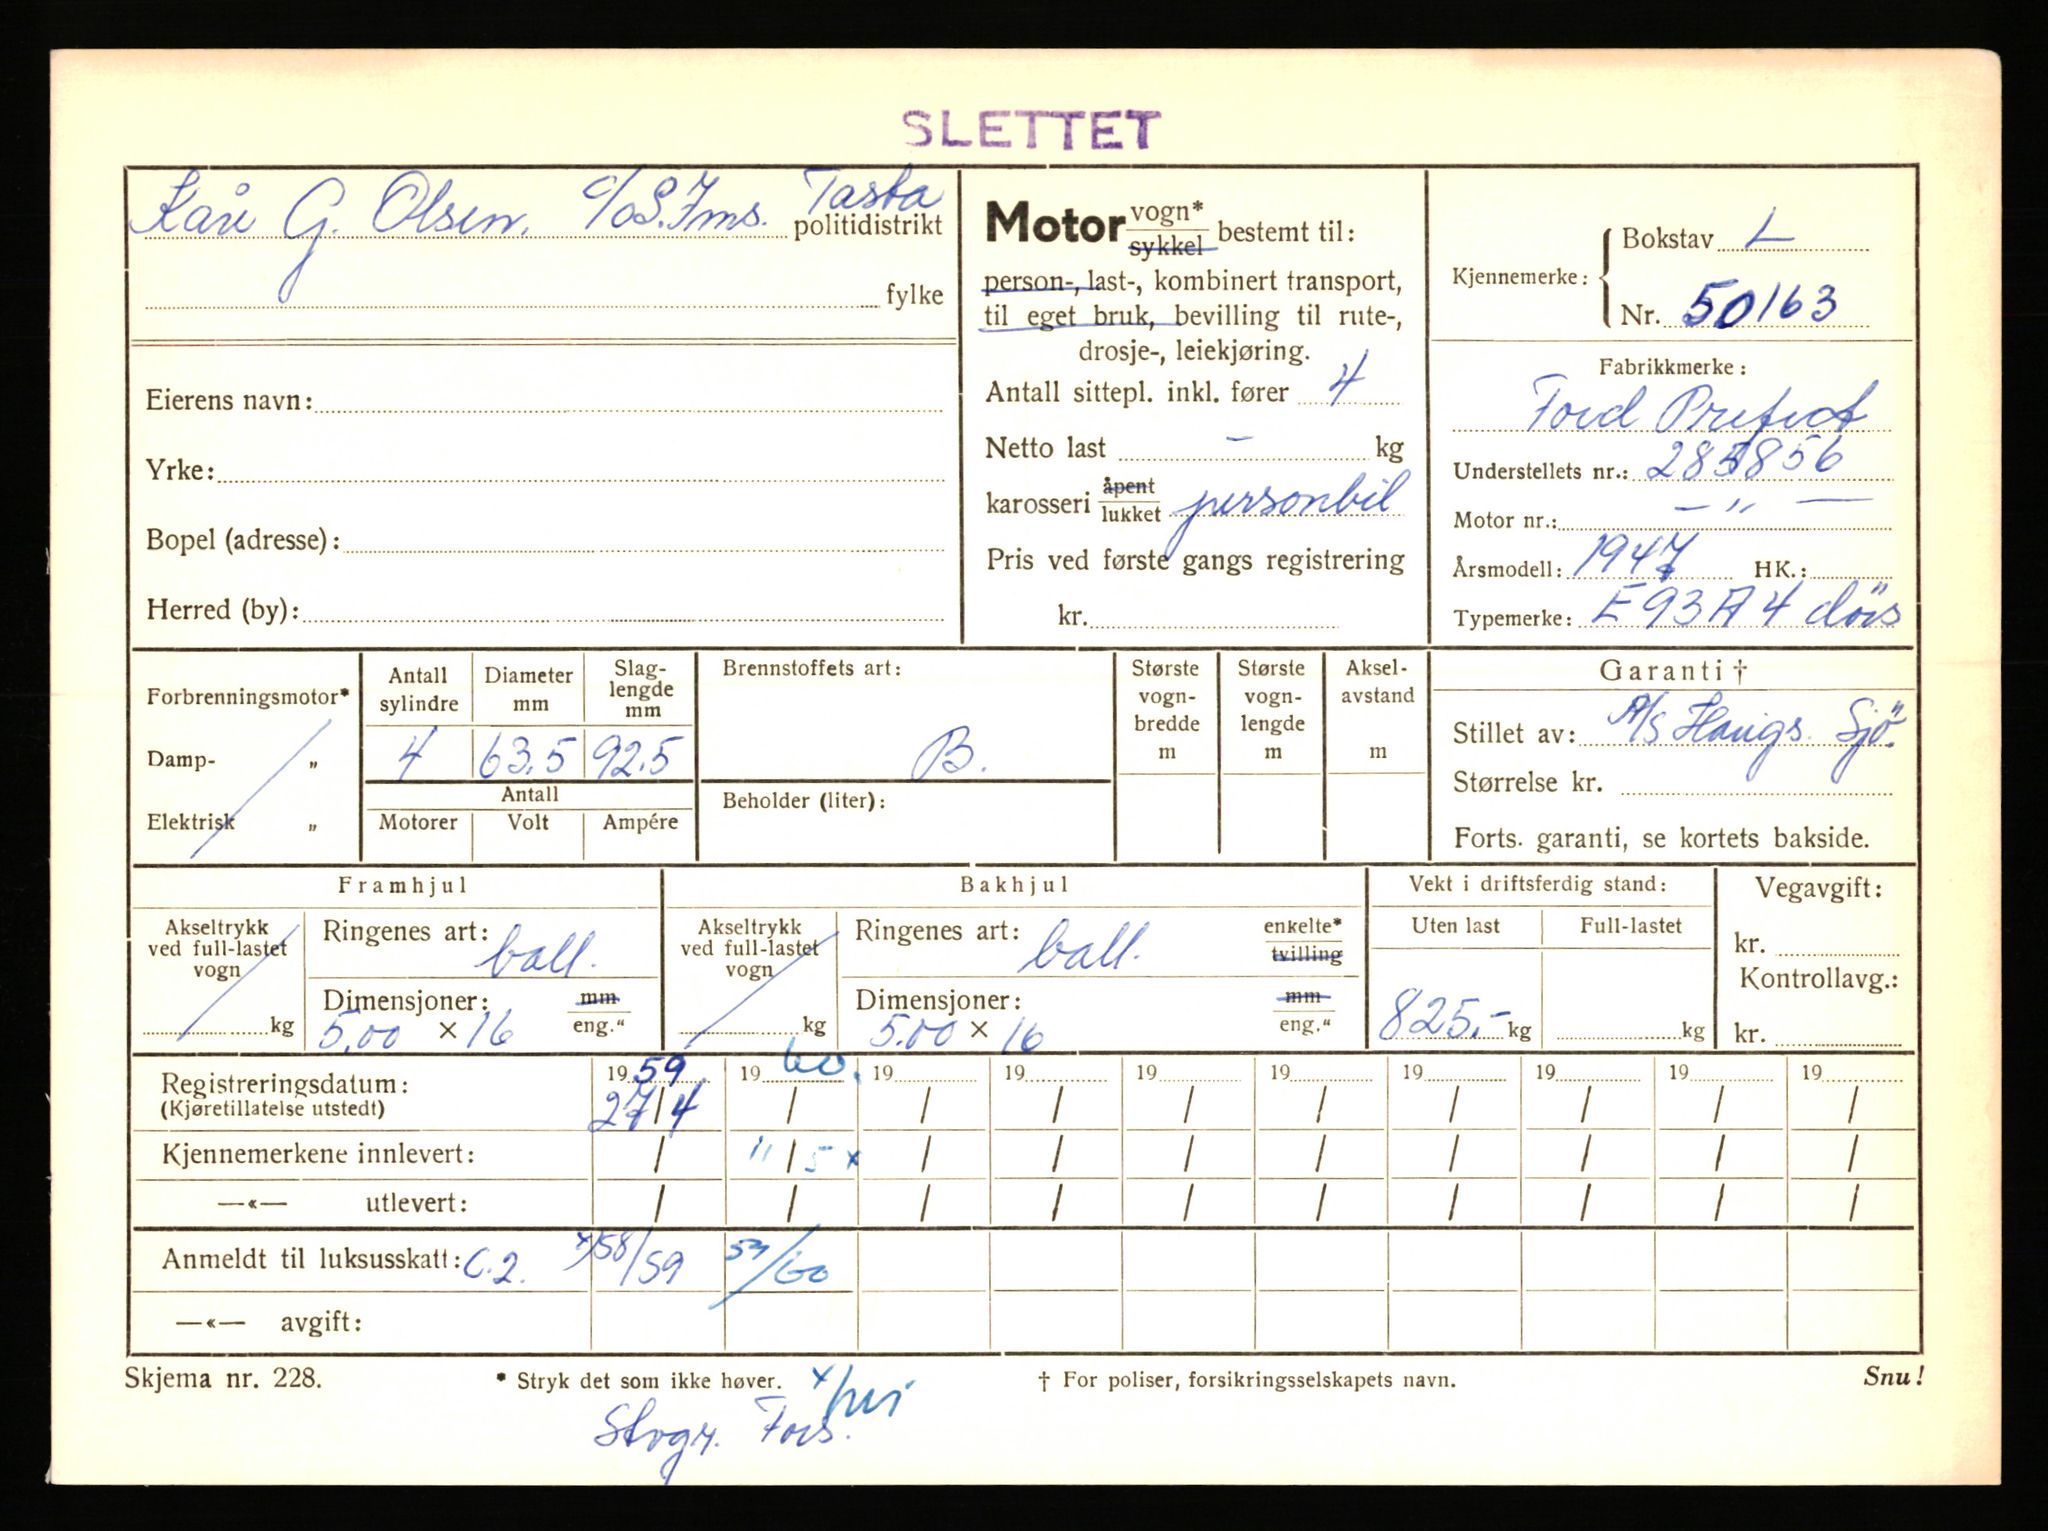 SLETTET
Kåre G. Olsen, c/o S. Ims. Tasta
politidistrikt
fylke
Eierens navn:
Yrke:
Bopel (adresse):
Herred (by):
Motor vogn* sykkel bestemt til:
person-, last-, kombinert transport,
til eget bruk, bevilling til rute-,
drosje-, leiekjøring.
Antall sittepl. inkl. fører 4
Netto last - kg
karosseri åpent lukket personbil
Pris ved første gangs registrering
kr.
Kjennemerke: Bokstav L
Nr. 50163
Fabrikkmerke:
Ford Prefect
Understellets nr.:
Motor nr.: — „ —
Årsmodell: 1947 HK.:
Typemerke: E93A 4 dörs
Forbrenningsmotor*
Damp- „
Elektrisk „
Antall sylindre
Diameter mm
Slag-
lengde
mm
4 63.5 92.5
Antall
Motorer Volt Ampére
Brennstoffets art:
B.
Beholder (liter):
Største
vogn-
bredde
m
Største
vogn-
lengde
m
Aksel-
avstand
m
Garanti †
Stillet av: A/S Haugs. Sjö.
Størrelse kr.
Forts. garanti, se kortets bakside.
Framhjul
Akseltrykk
ved full-lastet
vogn
kg
Ringenes art: ball.
Dimensjoner: mm
5.00 × 16 eng."
Bakhjul
Akseltrykk
ved full-lastet
vogn
kg
Ringenes art: ball. enkelte* tvilling
Dimensjoner: mm
5.00 × 16 eng."
Vekt i driftsferdig stand:
Uten last Full-lastet
825.- kg kg
Vegavgift:
kr.
Kontrollavg.:
kr.
Registreringsdatum: 1959 1960. 19 19 19 19 19 19 19 19
(Kjøretillatelse utstedt) 27/4 / / / / / / / / /
Kjennemerkene innlevert: / 11/5 x / / / / / / / /
—«— utlevert: / / / / / / / / / /
Anmeldt til luksusskatt: C.2. x/58/59 59/60
—«— avgift:
Skjema nr. 228. * Stryk det som ikke høver. † For poliser, forsikringsselskapets navn. Snu!
Stvgr. Fors.